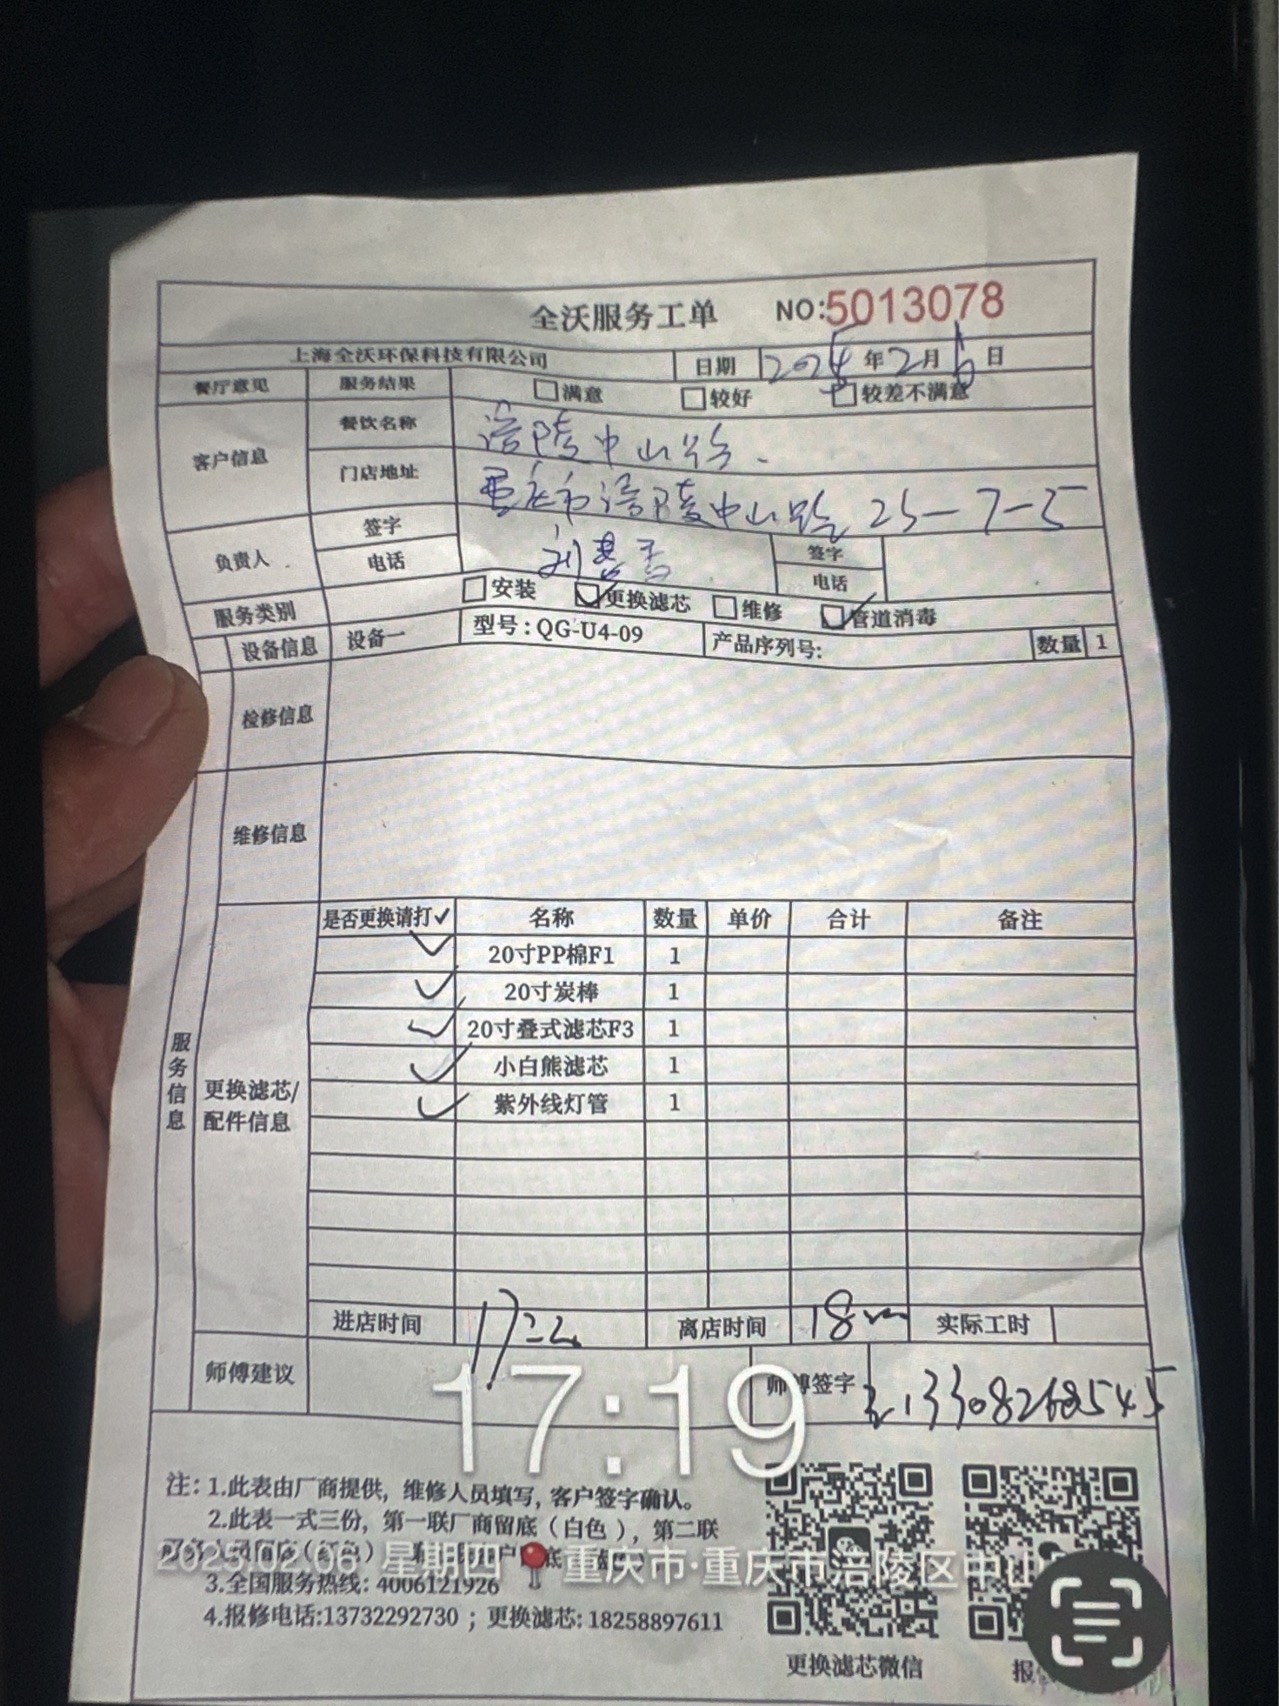 全沃服务工单 NO:5013078
上海全沃环保科技有限公司 日期 2025年2月6日
餐厅意见 服务结果 □满意 □较好 □较差不满意
客户信息 餐饮名称 涪陵中山路.
门店地址 重庆市涪陵中山路 25-7-5
负责人 签字 签字
电话 电话
服务类别 □安装 ☑更换滤芯 □维修 ☑管道消毒
设备信息 设备一 型号:QG-U4-09 产品序列号: 数量 1
检修信息
维修信息
服务信息
更换滤芯/配件信息
是否更换请打✓ 名称 数量 单价 合计 备注
✓ 20寸PP棉F1 1
✓ 20寸炭棒 1
✓ 20寸叠式滤芯F3 1
✓ 小白熊滤芯 1
✓ 紫外线灯管 1
进店时间 离店时间 实际工时
师傅建议 师傅签字 13308268545
17:19
注: 1.此表由厂商提供, 维修人员填写, 客户签字确认。
2.此表一式三份, 第一联厂商留底(白色), 第二联
2025.02.06 星期四 重庆市·重庆市涪陵区中山
3.全国服务热线: 4006121926
4.报修电话:13732292730 ; 更换滤芯: 18258897611
更换滤芯微信 报